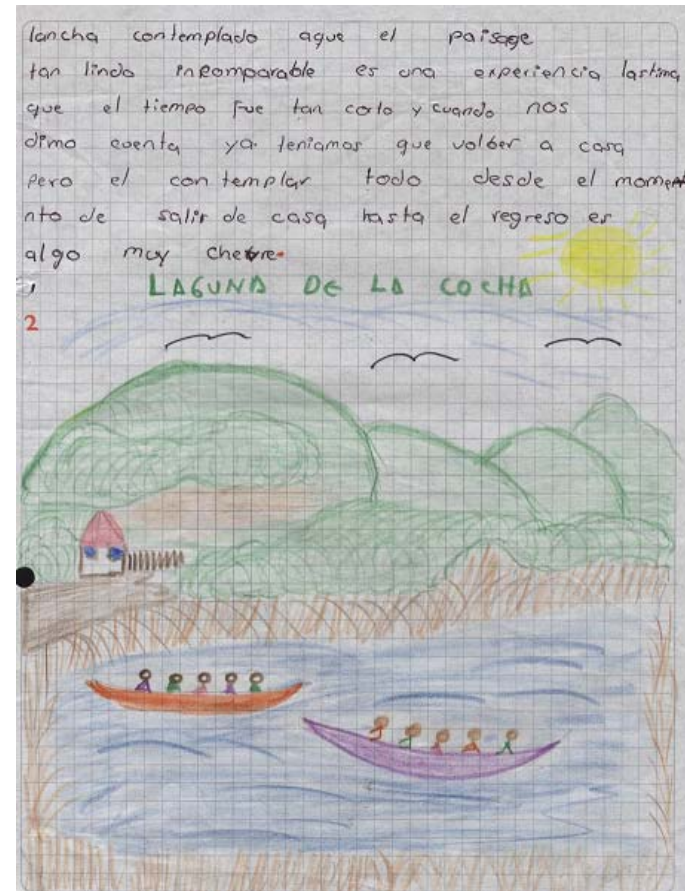 lancha contemplado aque el paisage
tan lindo incomparable es una experiencia lastima
que el tiempo fue tan corto y cuando nos
dimo cuenta ya teniamos que volber a casa
pero el contemplar todo desde el momen
nto de salir de casa hasta el regreso es
algo muy chevre.
LAGUNA DE LA COCHA
2